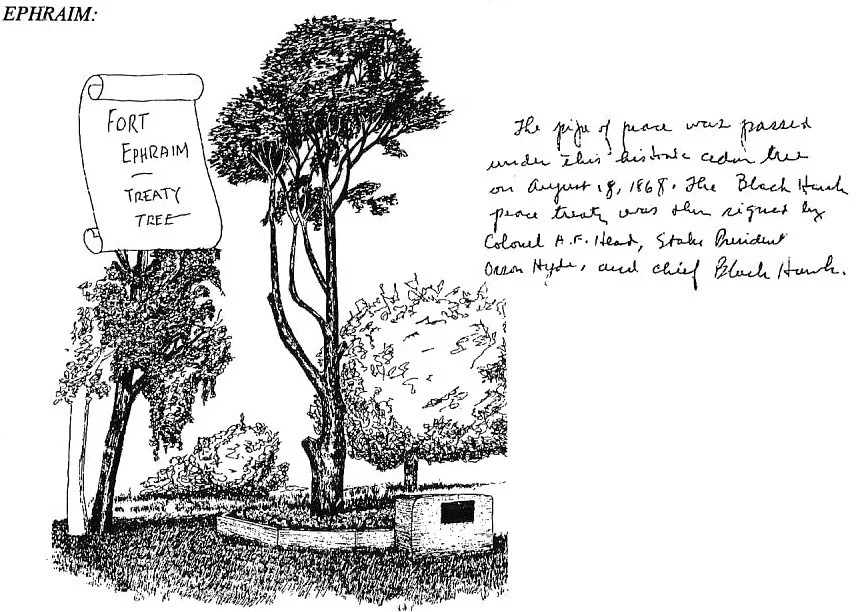 EPHRAIM:
FORT
EPHRAIM
—
TREATY
TREE
The pipe of peace was passed
under this historic cedar tree
on August 18, 1868. The Black Hawk
peace treaty was then signed by
Colonel A.F. Head, Stake President
Orson Hyde, and chief Black Hawk.